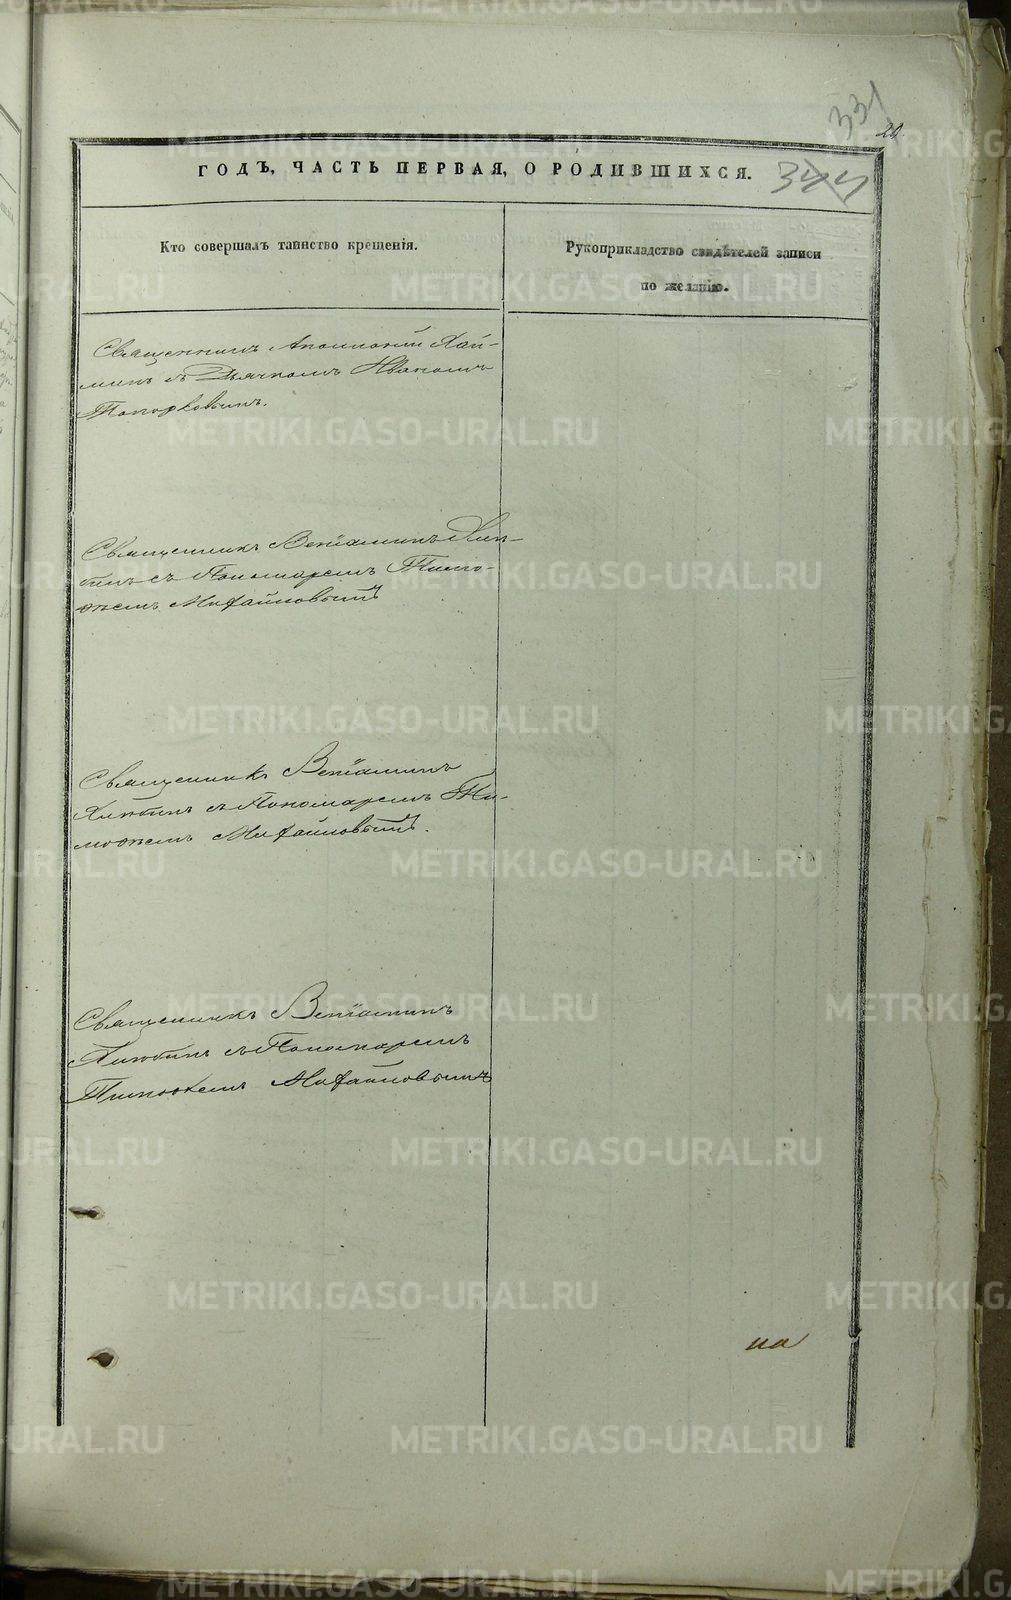 331
20.
ГОДЪ, ЧАСТЬ ПЕРВАЯ, О РОДИВШИХСЯ.
344
Кто совершалъ таинство крещенія.
Рукоприкладство свидѣтелей записи
по желанію.
Священникъ Аполлоній Хай-
минъ съ Дьячкомъ Иваномъ
Топорковымъ.
Священникъ Веніаминъ
съ Пономаремъ Тимо-
ѳеемъ Михайловымъ
Священникъ Веніаминъ
съ Пономаремъ Ти-
моѳеемъ Михайловымъ.
Священникъ Веніаминъ
съ Пономаремъ
Тимоѳеемъ Михайловымъ
на
METRIKI.GASO-URAL.RU